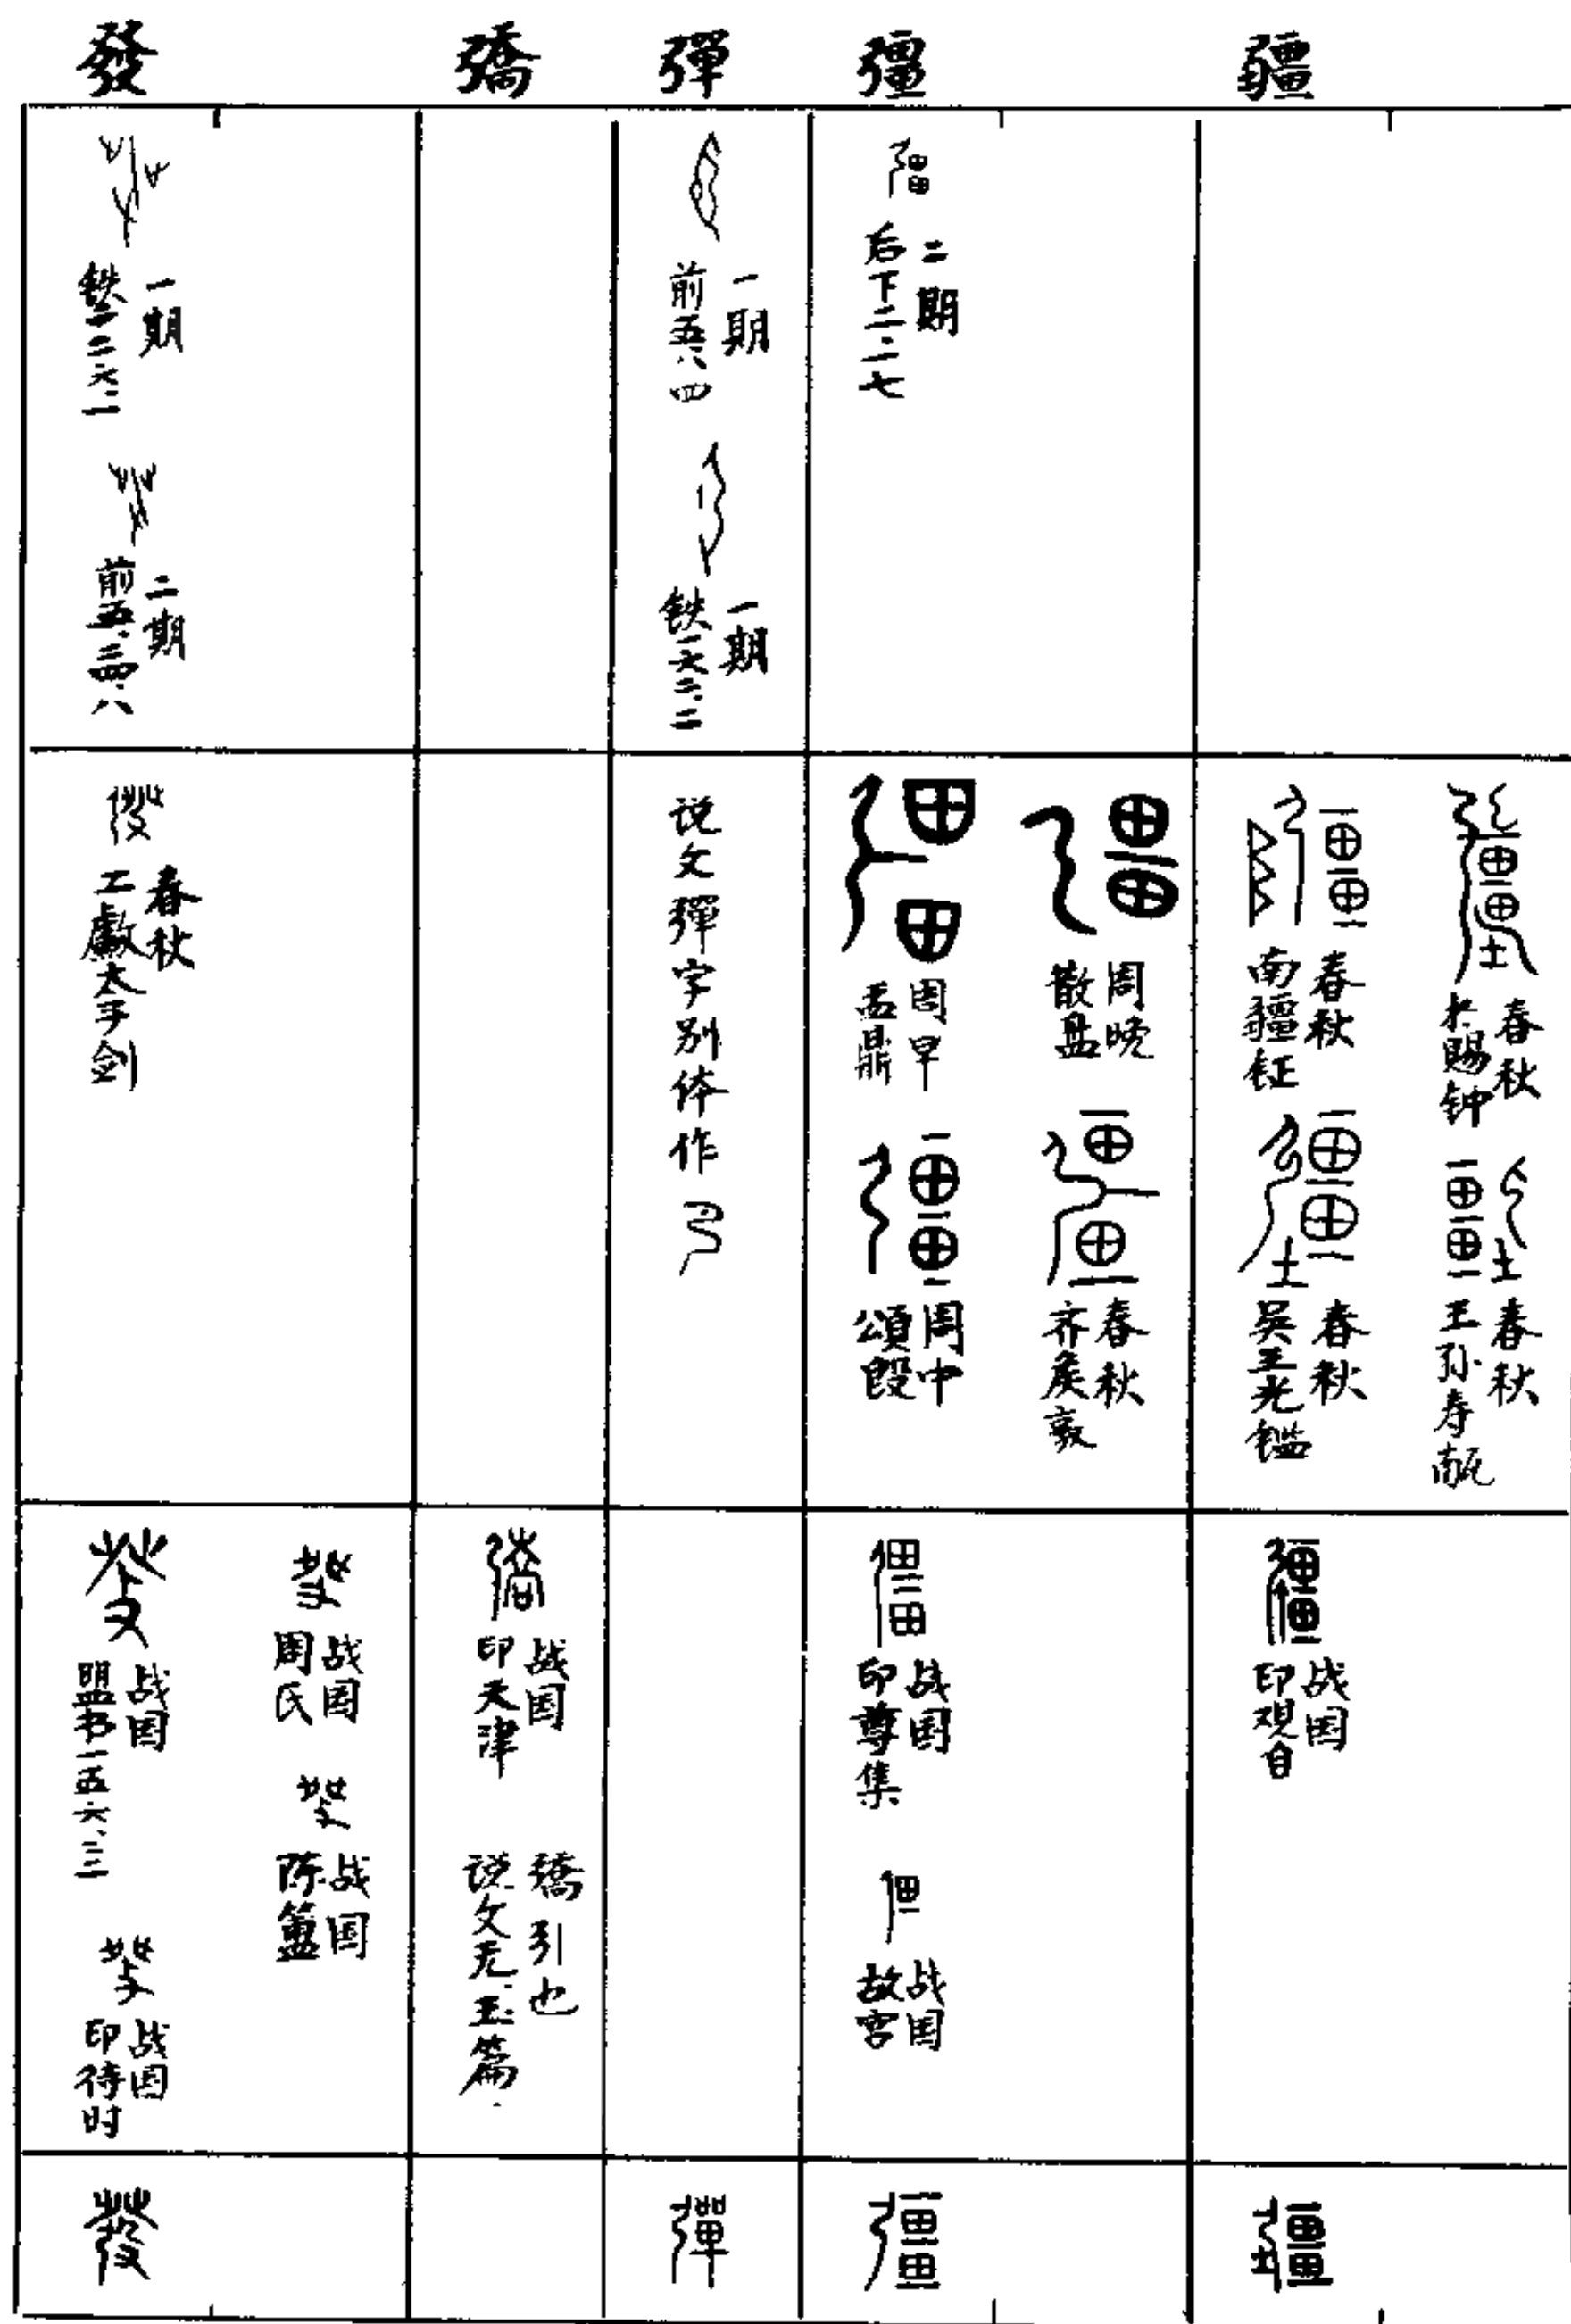 發
彊
彈
彊
疆
一期
铁二二六.一
二期
前五.二四.八
一期
前五.八.四
一期
铁一六二.二
二期
后下二.一七
春秋
工䱷太子剑
说文彈字别体作
周早
盂鼎
周晚
散盘
周中
頌𣪘
春秋
齐侯敦
春秋
南疆钲
春秋
吴王光鑑
春秋
王孙寿甗
战国
盟书一五六.三
战国
周氏
战国
陈簠
战国
印待时
战国
印天津
引也
说文无.玉篇.
战国
印尊集
战国
故宫
战国
印观自
發
彈
彊
疆